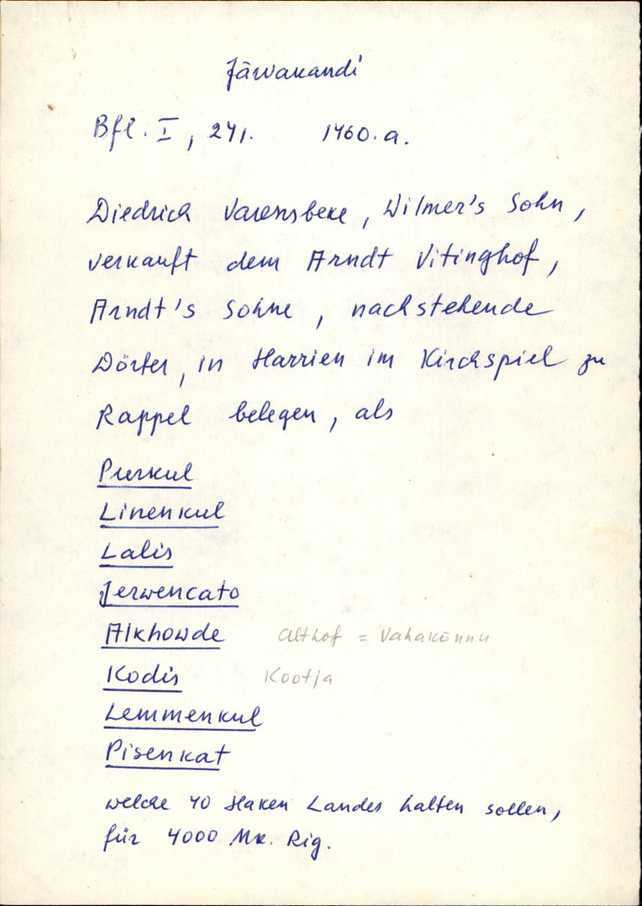 Järvakandi
Bfl. I, 241. 1460.a.
Diedrich Varensbeke, Wilmer's Sohn,
verkauft dem Arndt Vitinghof,
Arndt's Sohne, nachstehende
Dörfer, in Harrien im Kirchspiel zu
Rappel belegen, als
Purkul
Linenkul
Lalis
Jerwencato
Alkhowde Althof = Vahakõnnu
Kodis Kootja
Lemmenkul
Pisenkat
welche 40 Haken Landes halten sollen,
für 4000 Mk. Rig.